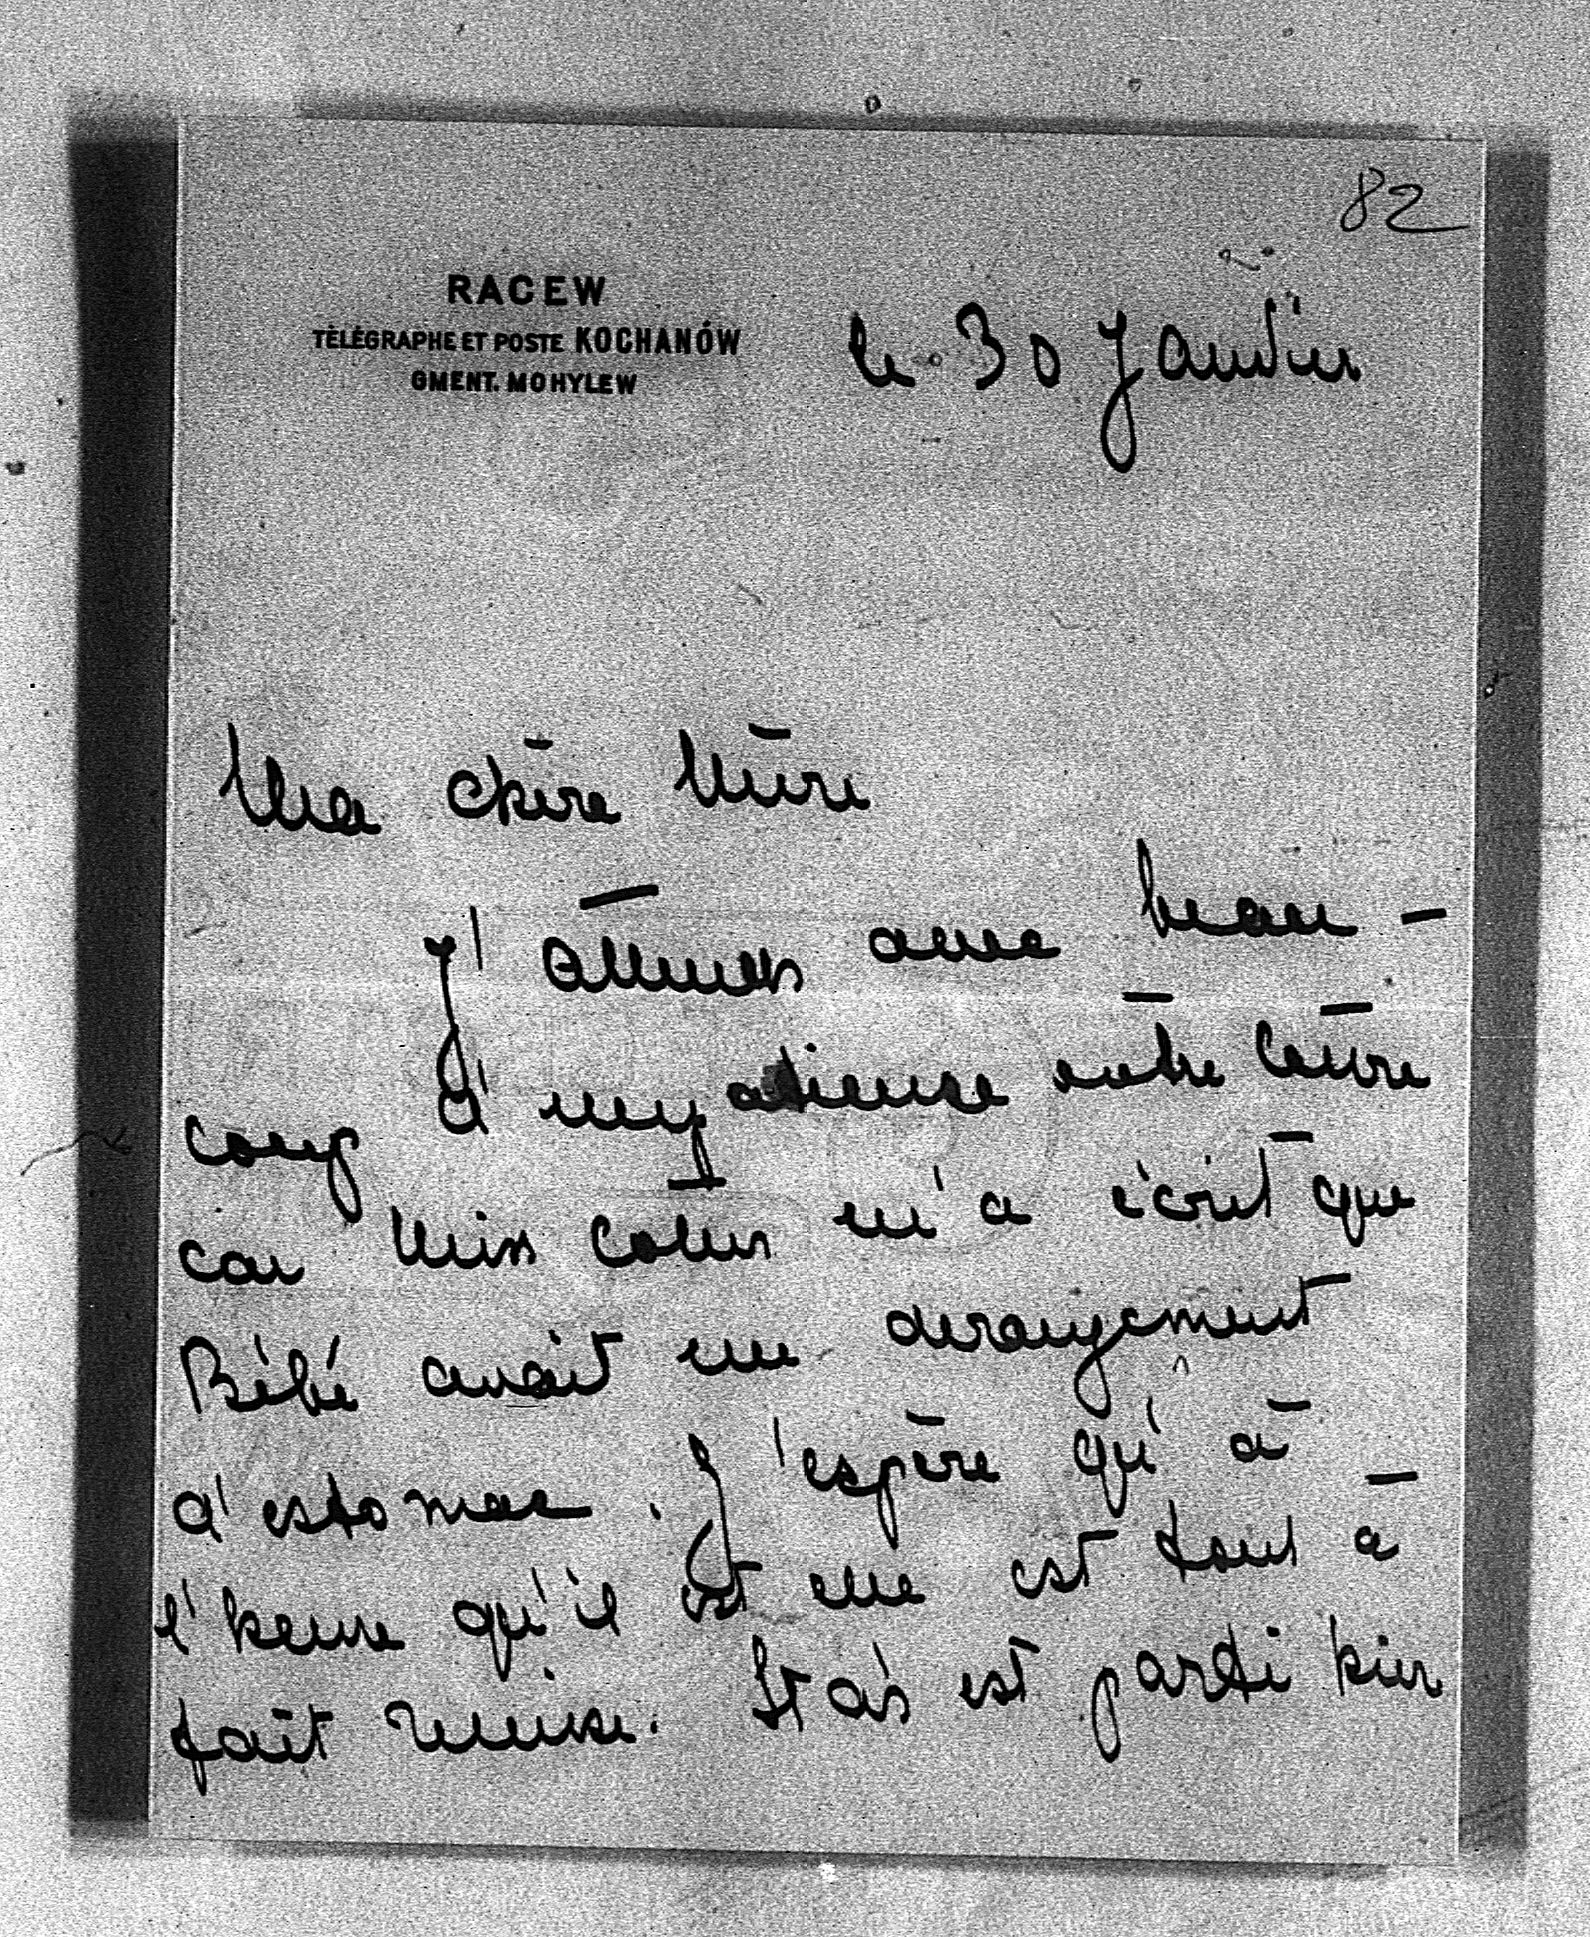 82
RACEW
TÉLÉGRAPHE ET POSTE KOCHANÓW
GMENT. MOHYLEW
le 30 Janvier
Ma chère Mère
J'attends avec beau-
coup d'impatience votre lettre
car Miss m'a écrit que
Bébé avait un derangement
d'estomac. J'espère qu'à
l'heure qu'il est elle est tout à
fait remise. Staś est parti hier